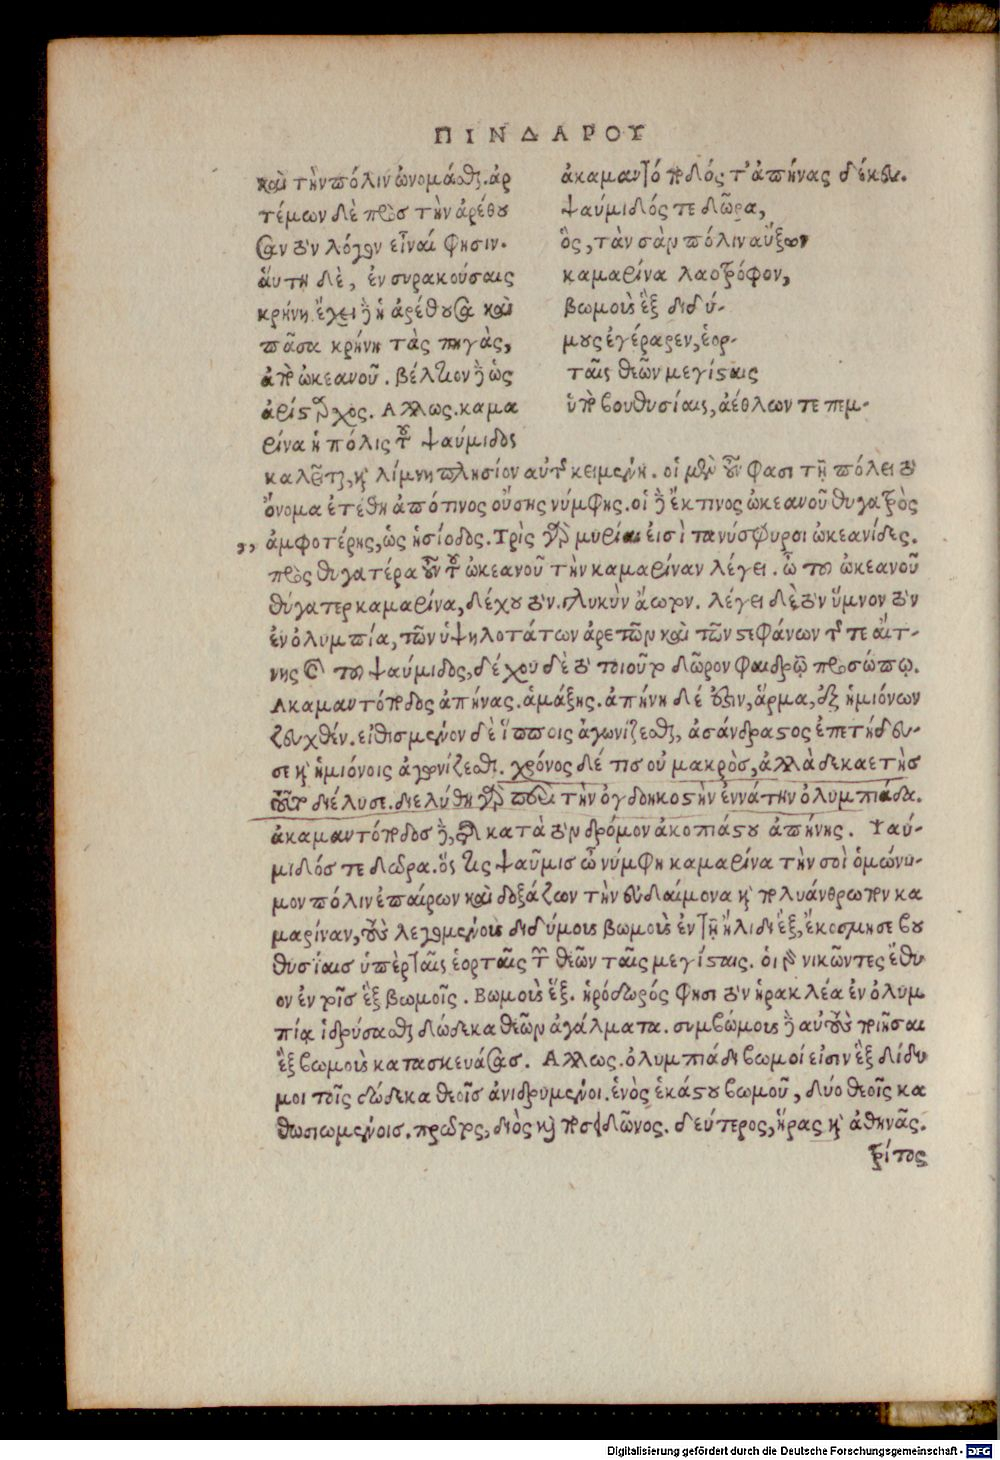 ΠΙΝΔΑΡΟΥ
καὶ τὴν πόλιν ὠνομάσθαι. ἀρ
τέμων δὲ πρὸς τὴν ἀρέθου
σαν τὸν λόγον εἶναί φησιν.
ἅυτη δὲ, ἐν συρακούσαις
κρήνη. ἔχει δὲ ἡ ἀρέθουσα καὶ
πᾶσα κρήνη τὰς πηγὰς,
ἀπὸ ὠκεανοῦ. βέλτιον δὲ ὡς
ἀρίσταρχος. Αλλως. καμα
ρίνα ἡ πόλις τοῦ ψαύμιδος
ἀκαμαντόποδός τ' ἀπήνας δέκευ.
ψαύμιδός τε δῶρα,
ὃς, τὰν σὰν πόλιν αὔξων
καμαρίνα λαοτρόφον,
βωμοὺς ἓξ διδύ-
μους ἐγέραρεν, ἑορ-
ταῖς θεῶν μεγίσταις
ὑπὸ βουθυσίαις, ἀέθλων τε πεμ-
καλεῖται, καὶ λίμνη πλησίον αὐτῆς κειμένη. οἱ μὲν οὖν φασι τῇ πόλει τὸ
ὄνομα ἐτέθη ἀπό τινος οὔσης νύμφης. οἱ δὲ ἔκ τινος ὠκεανοῦ θυγατρὸς
,, ἀμφοτέρης, ὡς ἡσίοδος. Τρὶς γὰρ μυρίαι εἰσὶ τανύσφυροι ὠκεανίδες.
πρὸς θυγατέρα οὖν τοῦ ὠκεανοῦ τὴν καμαρίναν λέγει. ὦ τοῦ ὠκεανοῦ
θύγατερ καμαρίνα, δέχου τὸν γλυκὺν ἄωτον. λέγει δὲ τὸν ὕμνον τὸν
ἐν ὀλυμπία, τῶν ὑψηλοτάτων ἀρετῶν καὶ τῶν στεφάνων τῆς τε ἀίτ-
νης καὶ τοῦ ψαύμιδος, δέχου δὲ τὸ τοιοῦτο δῶρον φαιδρῷ προσώπῳ.
Ακαμαντόποδος ἀπήνας. ἁμάξης. ἀπήνη δέ ἐστιν, ἅρμα, ἐξ ἡμιόνων
ζευχθέν. εἰθισμένον δὲ ἵπποις ἀγωνίζεσθαι, ἀσάνδραστος ἐπετήδευ-
σε καὶ ἡμιόνοις ἀγωνίζεσθαι. χρόνος δέ τις οὐ μακρὸς, ἀλλὰ δεκαετὴς
τοῦτο διέλυσε. διελύθη γὰρ περὶ τὴν ὀγδοηκοστὴν ἐννάτην ὀλυμπιάδα.
ἀκαμαντόποδος δὲ, τῆς κατὰ τὸν δρόμον ἀκοπιάστου ἀπήνης. Ψαύ-
μιδός τε δωρα. ὅς τις ψαῦμις ὦ νύμφη καμαρίνα τὴν σοὶ ὁμώνυ-
μον πόλιν ἐπαίρων καὶ δοξάζων τὴν εὐδαίμονα καὶ πολυάνθρωπον κα
μαρίναν, τοὺς λεγομένους διδύμους βωμοὺς ἐν τῇ ἤλιδι ἓξ, ἐκόσμησε βου
θυσΐαις ὑπὲρ ταῖς ἑορταῖς τῶν θεῶν ταῖς μεγίσταις. οἱ γὰρ νικῶντες ἔθυ
ον ἐν τοῖς ἓξ βωμοῖς. Βωμοὺς ἕξ. ἡρόδωρός φησι τὸν ἡρακλέα ἐν ὀλυμ
πίᾳ ἱδρύσασθαι δώδεκα θεῶν ἀγάλματα. συμβώμους δὲ αὐτοὺς ποιῆσαι
ἓξ βωμοὺς κατασκευάσας. Αλλως. ὀλυμπιάδι βωμοί εἰσιν ἓξ δίδυ
μοι τοῖς δώδεκα θεοῖς ἀνιδρυμένοι. ἑνὸς ἑκάστου βωμοῦ, δύο θεοῖς κα
θωσιωμένοις. πρῶτος, διὸς καὶ ποσειδῶνος. δεύτερος, ἥρας καὶ ἀθηνᾶς.
τρίτος
Digitalisierung gefördert durch die Deutsche Forschungsgemeinschaft - DFG